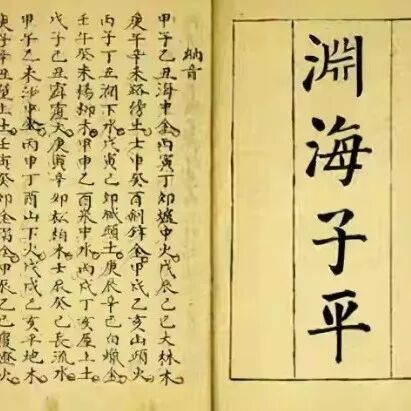 淵海子平
納音
甲子乙丑海中金丙寅丁卯爐中火戊辰己巳大林木
庚午辛未路傍土壬申癸酉劍鋒金甲戌乙亥山頭火
丙子丁丑澗下水戊寅己卯城頭土庚辰辛巳白蠟金
壬午癸未楊柳木甲申乙酉泉中水丙戌丁亥屋上土
戊子己丑霹靂火庚寅辛卯松柏木壬辰癸巳長流水
甲午乙未沙中金丙申丁酉山下火戊戌己亥平地木
庚子辛丑壁上土壬寅癸卯金箔金甲辰乙巳覆燈火